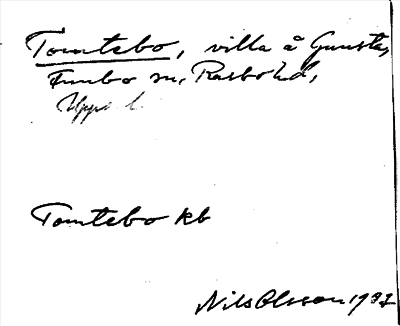 Tomtebo, villa å Gunsta,
Funbo sn, Rasbo hd,
Upps. l.
Tomtebo kb
Nils Olsson 1937